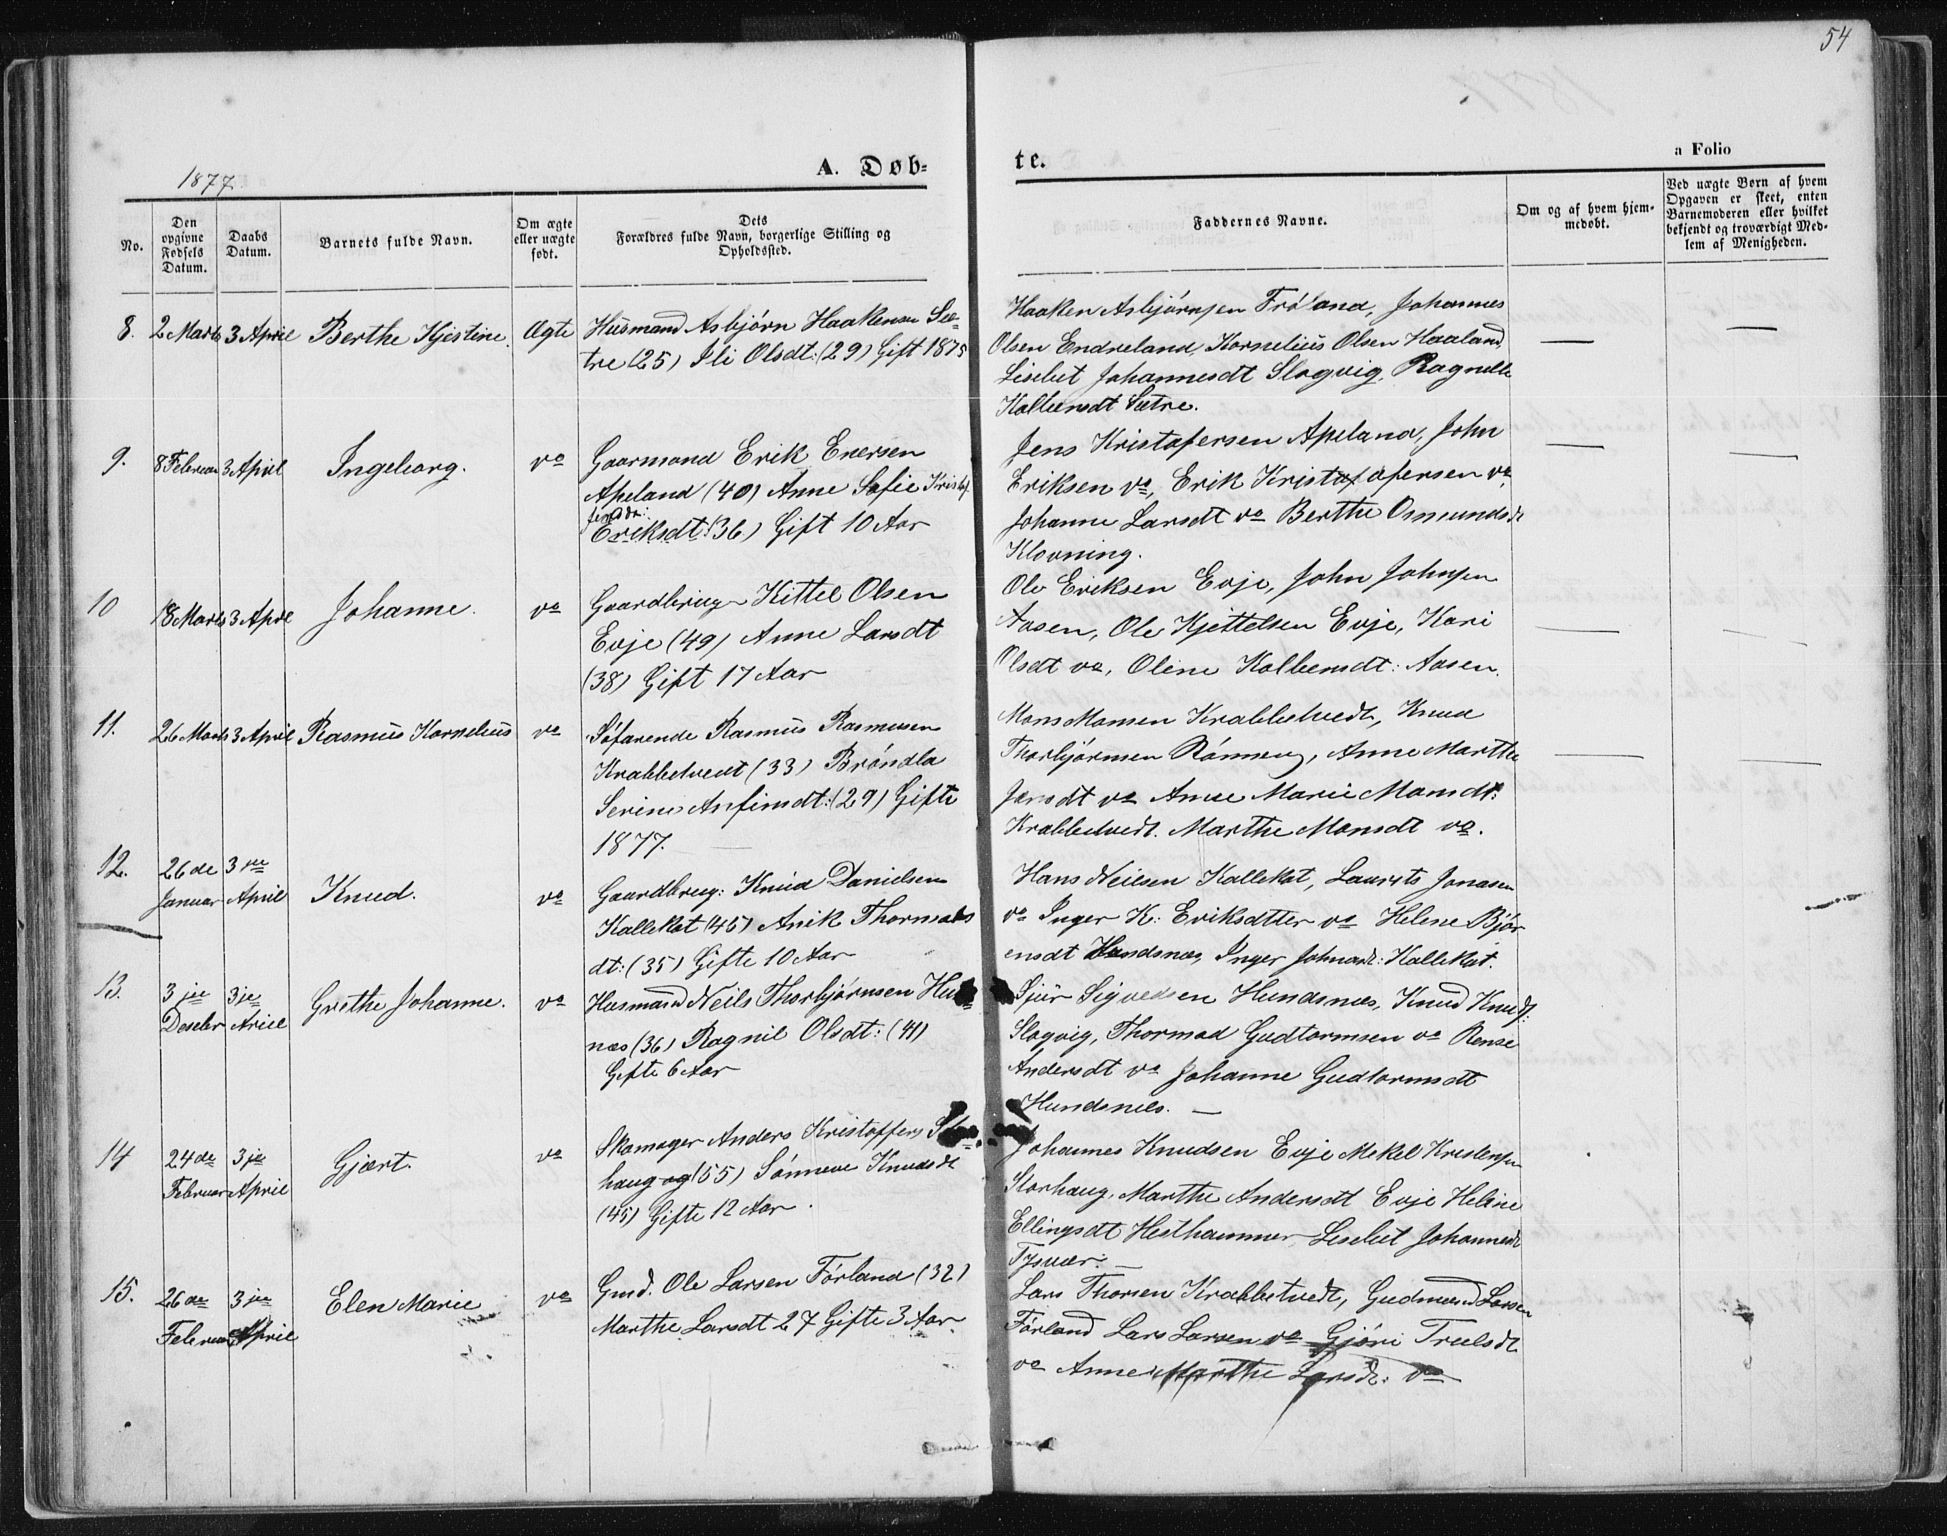 54
1877.
A. Døb-
te.
a Folio
No.
Den opgivne Fødsels Datum.
Daabs Datum.
Barnets fulde Navn.
Om ægte eller uægte født.
Dets Forældres fulde Navn, borgerlige Stilling og Opholdssted.
Faddernes Navne.
Om og af hvem hjem-
medøbt.
Ved uægte Børn af hvem
Opgaven er skeet, enten
Barnemoderen eller hvilket
bekjendt og troværdigt Med-
lem af Menigheden.
8. 2 Marts 3 April Berthe Kjestine. Ægte Husmand Asbjørn Haakensen Sæ-
tre (25) Ili Olsdt: (29) Gift 1875
Haaken Asbjørnsen Frøland, Johannes
Olsen Endreland, Kornelius Olsen Haaland,
Lisebet Johannesdt Slogvig, Ragnille
Kolbensdt Sætre.
9. 8 Februar 3 April Ingeborg. vo Gaarmand Erik Enersen
Apeland (40) Anne Sofie Kristof
fersdt:
Eriksdt: (36) Gift 10 Aar
Jens Kristofersen Apeland, John
Eriksen vo, Erik Kristofersen vo,
Johanne Larsdt vo Berthe Osmundsdt
Klovning.
10 18 Marts 3 April Johanne. vo Gaardbrug. Kittel Olsen
Evje (49) Anne Larsdt
(38) Gift 17 Aar
Ole Eriksen Evje, John Johnsen
Aasen, Ole Kjettelsen Evje, Kari
Olsdt vo, Oline Kolbensdt: Aasen.
11. 26 Marts 3 April Rasmus Kornelius vo Søfarende Rasmus Rasmusen
Krabbetvedt (33) Brøndla
Serine Anfinsdt: (29) Gifte
1877.
Mons Monsen Krabbetvedt, Knud
Thorbjørnsen Rønnevig, Anne Marthe
Jensdt vo Anne Marie Monsdt:
Krabbetvedt. Marthe Monsdt vo.
12. 26 de Januar 3 die April Knud. vo Gaardbrug: Knud Danielsen
Kallekot (45) Anik Thormods
dt: (35) Gifte 10 Aar
Hans Neilsen Kallekot, Laurits Jonasen
vo Inger K: Eriksdtter vo Helene Bjør
ensdt Hundsnes, Inger Johnsdt: Kallekot.
13. 3 je Deseber 3 je Ariel Grethe Johanne. vo Husmand Neils Thorbjørnsen Hu
næs (36) Ragnil Olsdt: (41)
Gifte 6 Aar
Sjur Sigvedsen Hundsnæs, Knud Knuds:
Slogvig, Thormod Gudtormsen vo Rense
Andersdt vo Johanne Gudtormsdt
Hundsnæs. —
14 24 de Februar 3 je April Gjært. vo Skomager Anders Kristoffers
haug og (55) Sønneve Knudsdt
(45) Gifte 12 Aar.
Johannes Knudsen Evje Mekel Kristensen
Storhaug, Marthe Andersdt Evje Heline
Ellingsdt Hesthammer Lisebet Johannesdt
Tysvær. —
15. 26 de Februar 3 je April Elen Marie vo Gmd. Ole Larsen Førland (32)
Marthe Larsdt 27 Gifte 3 Aar.
Lars Thorsen Krabbetvedt, Gudmund Larsen
Førland Lars Larsen vo Gjøri Truelsdt
vo Anne Marthe Larsdt: vo